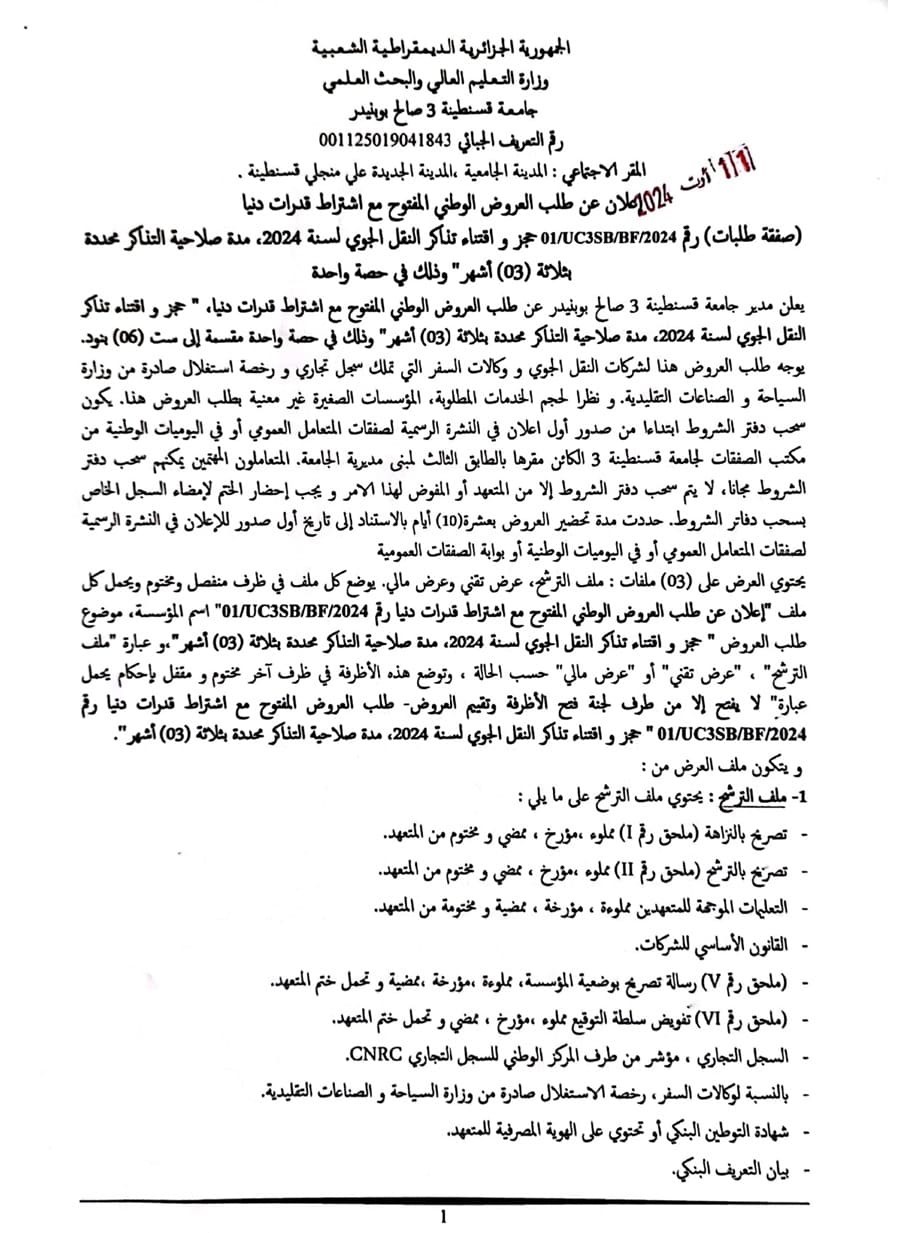 الجمهورية الجزائرية الديمقراطية الشعبية
وزارة التعليم العالي والبحث العلمي
جامعة قسنطينة 3 صالح بوبنيدر
رقم التعريف الجبائي 001125019041843
المقر الاجتماعي : المدينة الجامعية ،المدينة الجديدة علي منجلي قسنطينة .
أوت 2024
إعلان عن طلب العروض الوطني المفتوح مع اشتراط قدرات دنيا
(صفقة طلبات) رقم 01/UC3SB/BF/2024 حجز و اقتناء تذاكر النقل الجوي لسنة 2024، مدة صلاحية التذاكر محددة
بثلاثة (03) أشهر" وذلك في حصة واحدة
يعلن مدير جامعة قسنطينة 3 صالح بوبنيدر عن طلب العروض الوطني المفتوح مع اشتراط قدرات دنيا، " حجز و اقتناء تذاكر
النقل الجوي لسنة 2024، مدة صلاحية التذاكر محددة بثلاثة (03) أشهر" وذلك في حصة واحدة مقسمة إلى ست (06) بنود.
يوجه طلب العروض هذا لشركات النقل الجوي و وكالات السفر التي تملك سجل تجاري و رخصة استغلال صادرة من وزارة
السياحة و الصناعات التقليدية. و نظرا لحجم الخدمات المطلوبة، المؤسسات الصغيرة غير معنية بطلب العروض هذا. يكون
سحب دفتر الشروط ابتداءا من صدور أول اعلان في النشرة الرسمية لصفقات المتعامل العمومي أو في اليوميات الوطنية من
مكتب الصفقات لجامعة قسنطينة 3 الكائن مقرها بالطابق الثالث لمبنى مديرية الجامعة. المتعاملون المهتمين يمكنهم سحب دفتر
الشروط مجانا، لا يتم سحب دفتر الشروط إلا من المتعهد أو المفوض لهذا الامر و يجب إحضار الختم لإمضاء السجل الخاص
بسحب دفاتر الشروط. حددت مدة تحضير العروض بعشرة(10) أيام بالاستناد إلى تاريخ أول صدور للإعلان في النشرة الرسمية
لصفقات المتعامل العمومي أو في اليوميات الوطنية أو بوابة الصفقات العمومية
يحتوي العرض على (03) ملفات : ملف الترشح، عرض تقني وعرض مالي. يوضع كل ملف في ظرف منفصل ومختوم ويحمل كل
ملف "إعلان عن طلب العروض الوطني المفتوح مع اشتراط قدرات دنيا رقم 01/UC3SB/BF/2024" اسم المؤسسة، موضوع
طلب العروض " حجز و اقتناء تذاكر النقل الجوي لسنة 2024، مدة صلاحية التذاكر محددة بثلاثة (03) أشهر"،و عبارة "ملف
الترشح" ، "عرض تقني" أو "عرض مالي" حسب الحالة ، وتوضع هذه الأظرفة في ظرف آخر مختوم و مقفل بإحكام يحمل
عبارة" لا يفتح إلا من طرف لجنة فتح الأظرفة وتقييم العروض- طلب العروض المفتوح مع اشتراط قدرات دنيا رقم
01/UC3SB/BF/2024 " حجز و اقتناء تذاكر النقل الجوي لسنة 2024، مدة صلاحية التذاكر محددة بثلاثة (03) أشهر".
و يتكون ملف العرض من :
1- ملف الترشح : يحتوي ملف الترشح على ما يلي :
- تصريح بالنزاهة (ملحق رقم I) مملوء ،مؤرخ ، ممضي و مختوم من المتعهد.
- تصريح بالترشح (ملحق رقم II) مملوء ،مؤرخ ، ممضي و مختوم من المتعهد.
- التعليمات الموجهة للمتعهدين مملوءة ، مؤرخة ، ممضية و مختومة من المتعهد.
- القانون الأساسي للشركات.
- (ملحق رقم V) رسالة تصريح بوضعية المؤسسة، مملوءة ،مؤرخة ،ممضية و تحمل ختم المتعهد.
- (ملحق رقم VI) تفويض سلطة التوقيع مملوء ،مؤرخ ، ممضي و تحمل ختم المتعهد.
- السجل التجاري ، مؤشر من طرف المركز الوطني للسجل التجاري CNRC.
- بالنسبة لوكالات السفر، رخصة الاستغلال صادرة من وزارة السياحة و الصناعات التقليدية.
- شهادة التوطين البنكي أو تحتوي على الهوية المصرفية للمتعهد.
- بيان التعريف البنكي.
1